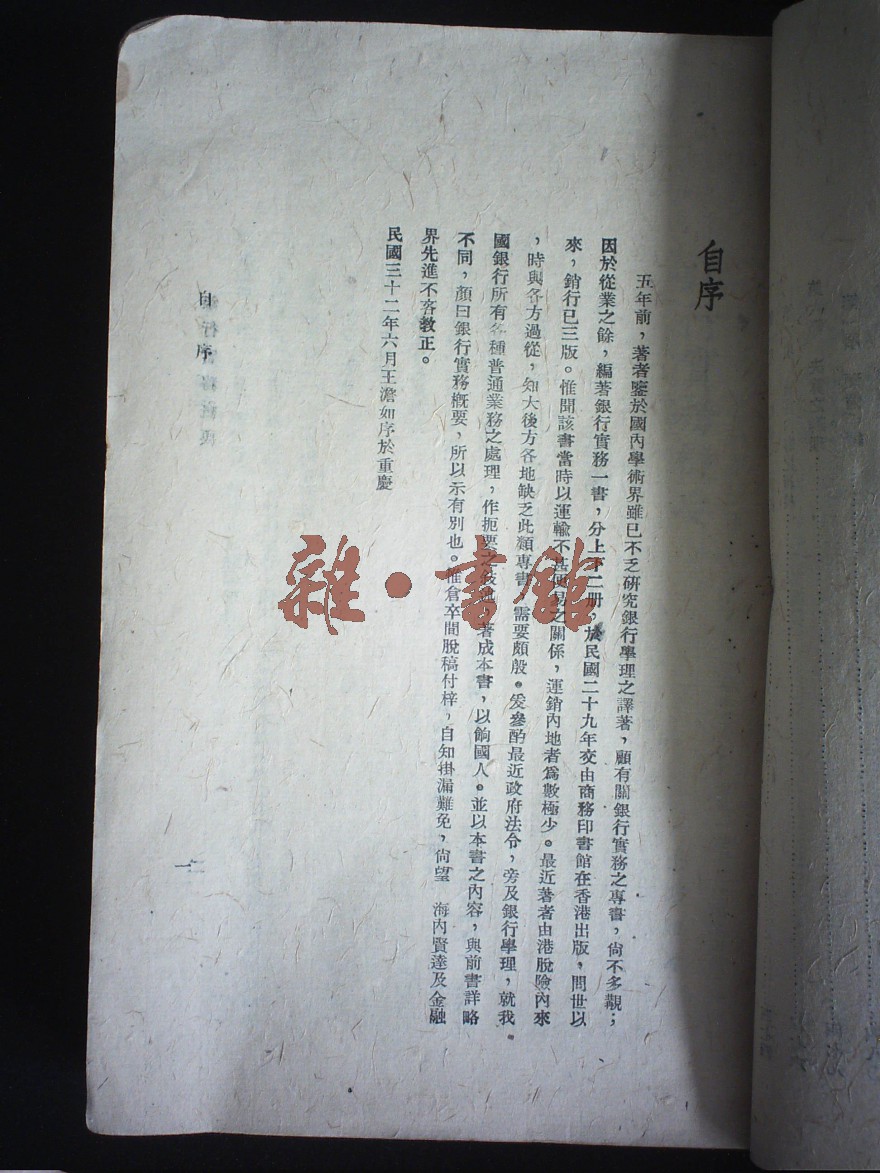 自序
五年前，著者鑒於國內學術界雖已不乏研究銀行學理之譯著，顧有關銀行實務之專書，尙不多觀；
因於從業之餘，編著銀行實務一書，分上下二册，於民國二十九年交由商務印書館在香港出版，問世以
來，銷行已三版。惟聞該書當時以運輸不甚便易之關係，運銷內地者爲數極少。最近著者由港脫險內來
，時與各方過從，知大後方各地缺乏此類專書，需要頗殷。爰參酌最近政府法令，旁及銀行學理，就我
國銀行所有各種普通業務之處理，作扼要之敍述，著成本書，以餉國人。並以本書之內容，與前書詳略
不同，顏曰銀行實務槪要，所以示有別也。惟倉卒間脫稿付梓，自知掛漏難免，尙望　海內賢達及金融
界先進不吝敎正。
民國三十二年六月王澹如序於重慶
自序
一
雜·書館